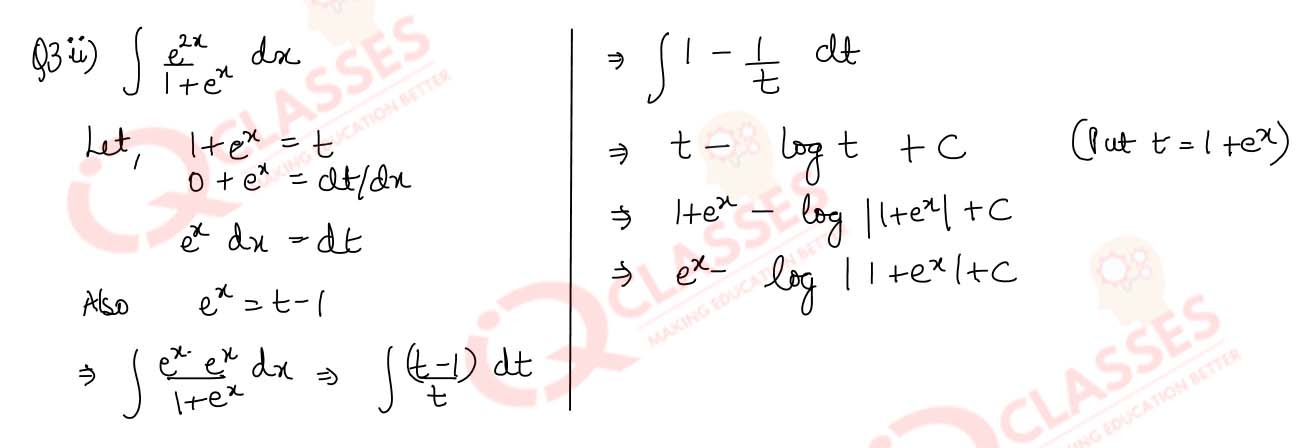 Q3 ii) ∫ e^{2x}/(1+e^x) dx
Let, 1+e^x = t
0 + e^x = dt/dx
e^x dx = dt
Also e^x = t-1
⇒ ∫ (e^x · e^x)/(1+e^x) dx ⇒ ∫ (t-1)/t dt
⇒ ∫ 1 - 1/t dt
⇒ t - log t + C (Put t = 1+e^x)
⇒ 1+e^x - log |1+e^x| + C
⇒ e^x - log |1+e^x| + C
IQ CLASSES
MAKING EDUCATION BETTER
IQ CLASSES
MAKING EDUCATION BETTER
CLASSES
MAKING EDUCATION BETTER